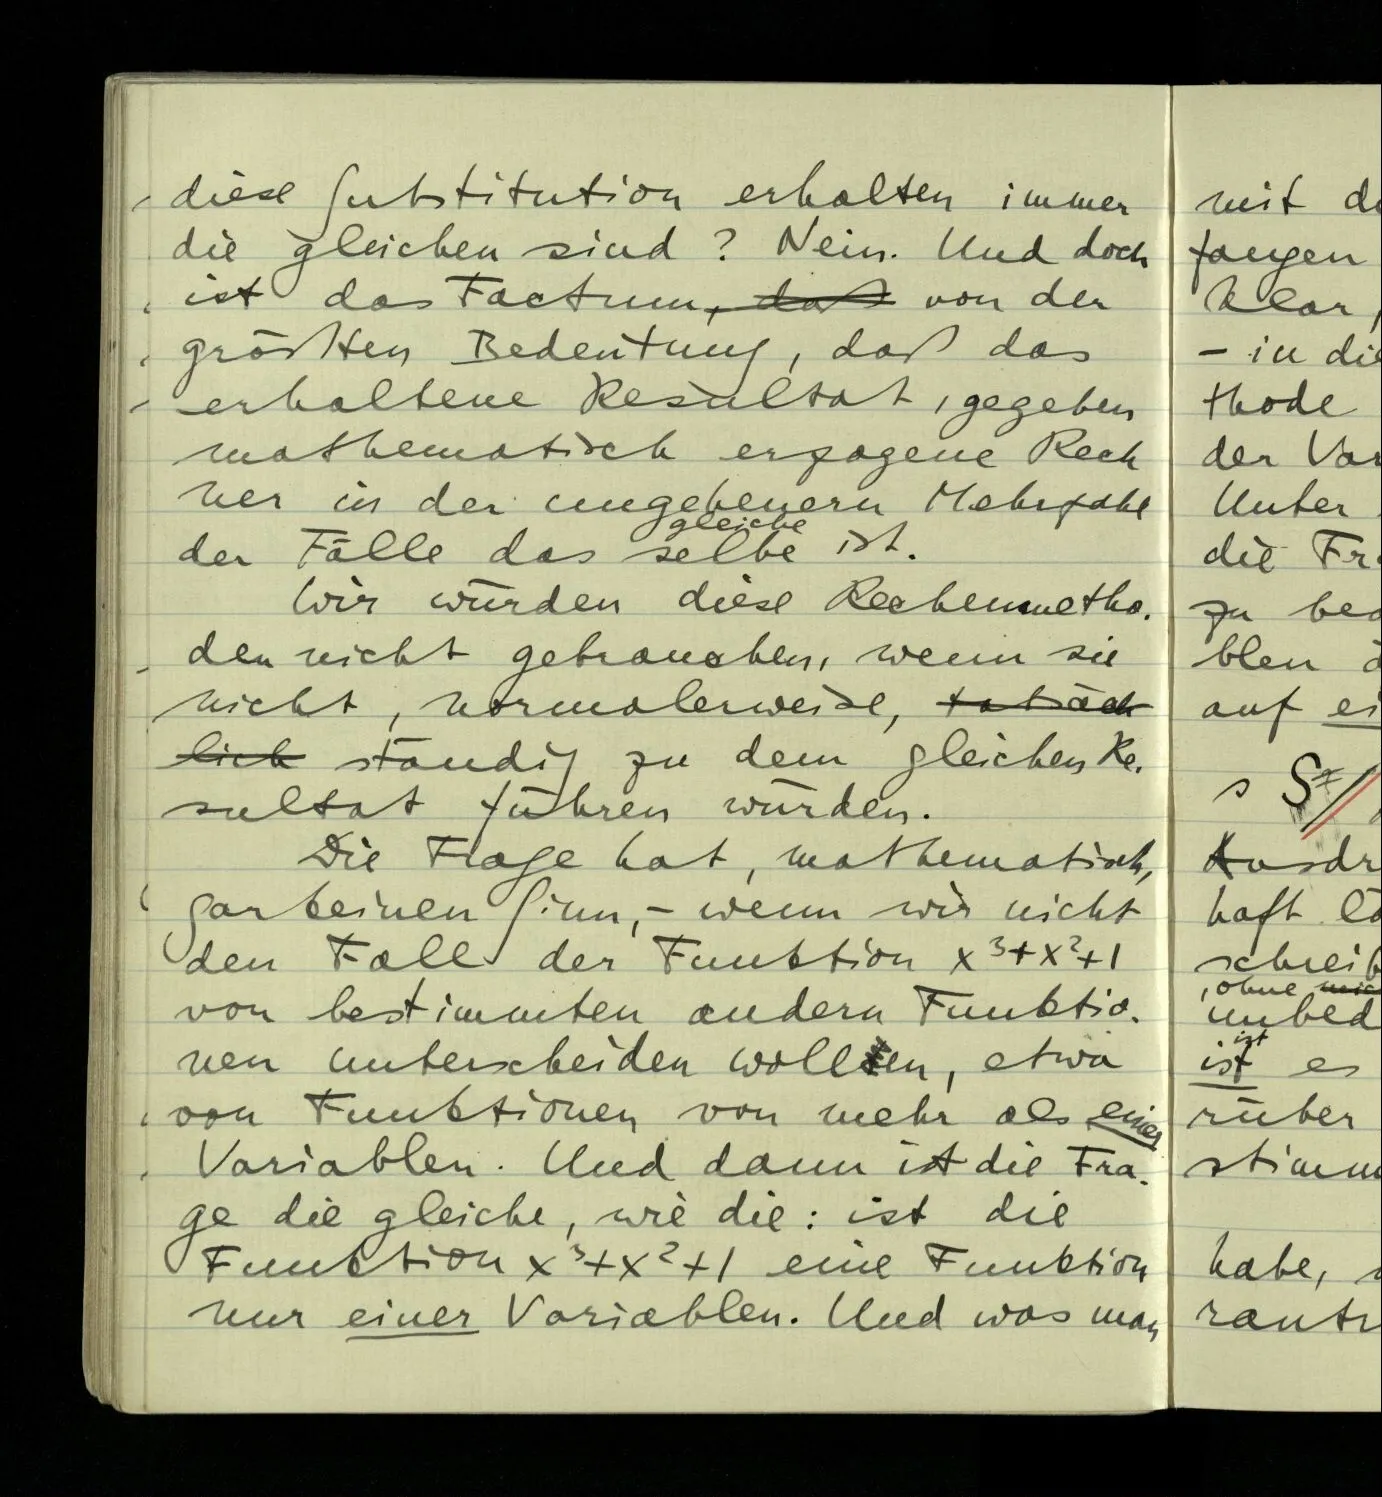 diese Substitution erhalten immer
die gleichen sind? Nein. Und doch
ist das Factum, daß von der
größten Bedeutung, daß das
erhaltene Resultat, gegeben
mathematisch erzogene Rech
ner in der ungeheuern Mehrzahl
gleiche
der Fälle das selbe ist.
Wir würden diese Rechenmetho-
den nicht gebrauchen, wenn sie
nicht, normalerweise, tatsäch
lich ständig zu dem gleichen Re-
sultat führen würden.
Die Frage hat, mathematisch,
gar keinen Sinn, – wenn wir nicht
den Fall der Funktion x³+x²+1
von bestimmten andern Funktio-
nen unterscheiden wollten, etwa
von Funktionen von mehr als einer
Variablen. Und dann ist die Fra-
ge die gleiche, wie die: ist die
Funktion x³+x²+1 eine Funktion
nur einer Variablen. Und was man
mit
fangen
klar,
– in
thode
der
Unter
die
zu
blen
auf
s S
haft
, ohne
ist
ist es
rüber
habe,